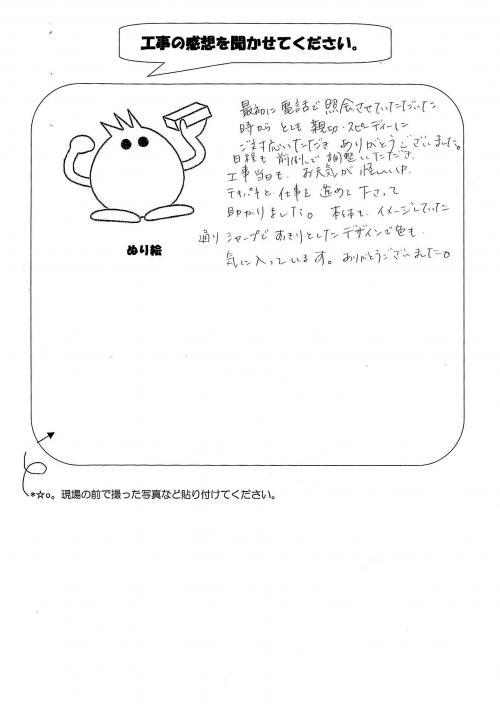 工事の感想を聞かせてください。
最初に電話で照会させていただいた
時から とても 親切・スピーディーに
ご対応いただき ありがとうございました。
日程も 前倒しで 調整いただき、
工事当日も、お天気が 怪しい中
テキパキと 仕事を 進めて 下さって
助かりました。 本体も、イメージしていた
通り シャープで あきりとしたデザインで色も
気に入っています。ありがとうございました。
ぬり絵
*☆o。現場の前で撮った写真など貼り付けてください。